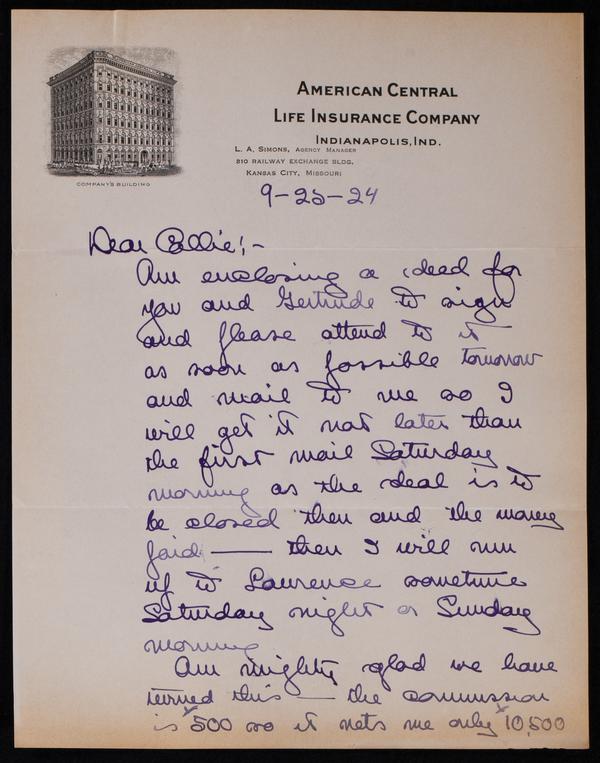 AMERICAN CENTRAL
LIFE INSURANCE COMPANY
INDIANAPOLIS, IND.
L. A. SIMONS, AGENCY MANAGER
810 RAILWAY EXCHANGE BLDG.
KANSAS CITY, MISSOURI
COMPANY'S BUILDING
9-25-24
Dear Collie!-
Am enclosing a deed for
you and Gertrude to sign
and please attend to it
as soon as possible tomorrow
and mail to me so I
will get it not later than
the first mail Saturday
morning as the deal is to
be closed then and the money
paid — then I will run
up to Lawrence sometime
Saturday night or Sunday
morning
Am mighty glad we have
turned this — the commission
is 500 so it nets me only 10,500